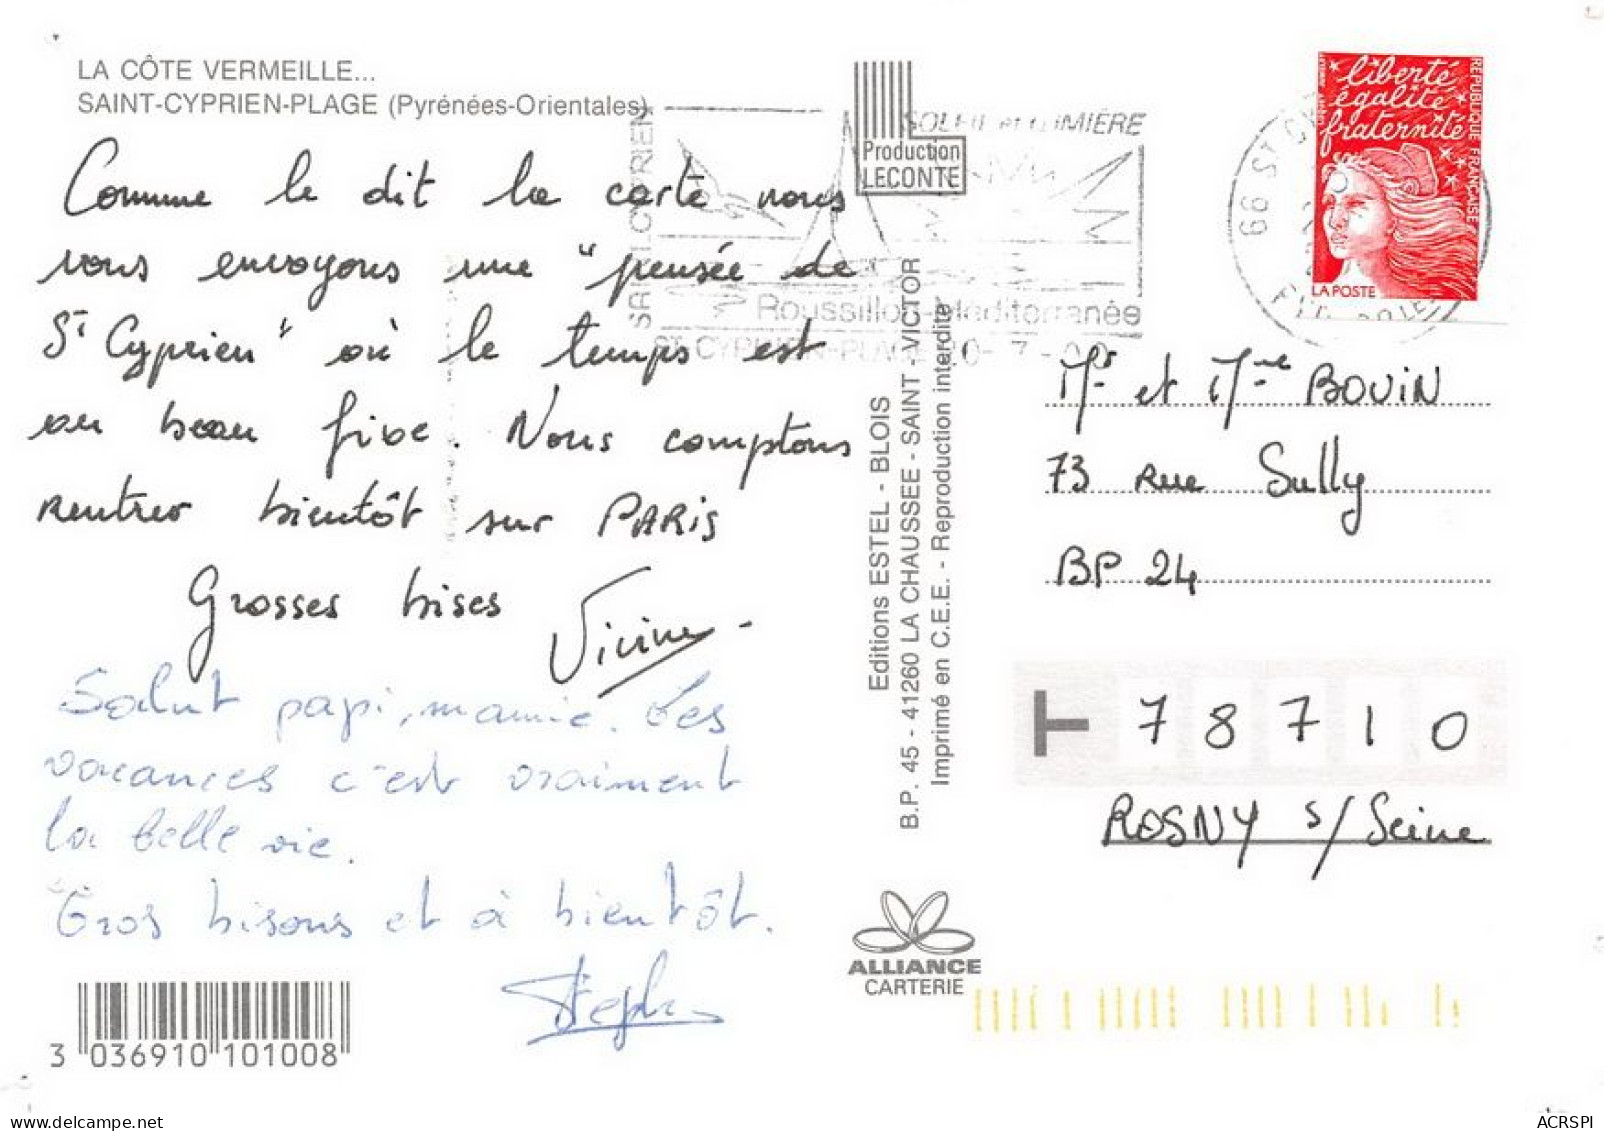 LA CÔTE VERMEILLE...
SAINT-CYPRIEN-PLAGE (Pyrénées-Orientales)
Comme le dit la carte nous
vous envoyons une "pensée de
St Cyprien" où le temps est
au beau fixe. Nous comptons
rentrer bientôt sur PARIS
Grosses bises
Salut papi, mamie. Les
vacances c'est vraiment
la belle vie.
Gros bisous et à bientôt.
3 036910 101008
Production
LECONTE
SOLEIL et LUMIÈRE
SAINT CYPRIEN
Roussillon-Méditerranée
ST CYPRIEN-PLAGE
Editions ESTEL - BLOIS
B.P. 45 - 41260 LA CHAUSSEE - SAINT - VICTOR
Imprimé en C.E.E. - Reproduction interdite
ALLIANCE
CARTERIE
liberté
égalité
fraternité
REPUBLIQUE FRANÇAISE
LA POSTE
66 St
Mr et Mme BOUIN
73 Rue Sully
BP 24
78710
ROSNY s/Seine
ACRSPI